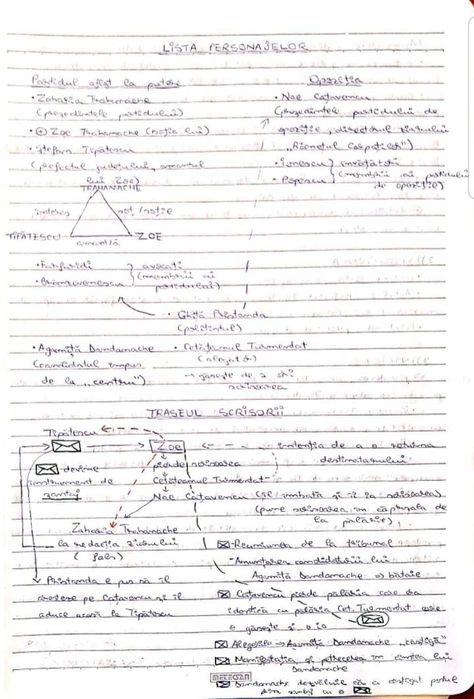 LISTA PERSONAJELOR
Partidul aflat la putere
• Zaharia Trahanache
(președintele partidului)
• Zoe Trahanache (soția lui)
• Ștefan Tipătescu
(prefectul județului, amantul
lui Zoe)
Opoziția
• Nae Cațavencu
(președintele partidului de
opoziție, directorul ziarului
„Răcnetul Carpaților")
• Ionescu
• Popescu
(membrii ai partidului
de opoziție)
TRAHANACHE
interes
soț/soție
TIPĂTESCU
ZOE
amant/ă
• Farfuridi
• Brânzovenescu
avocați
(membrii ai
partidului)
• Ghiță Pristanda
(polițistul)
• Agamiță Dandanache
(candidatul impus
de la „centru")
• Cetățeanul Turmentat
(alegător)
→ găsește de 2 ori
scrisoarea
TRASEUL SCRISORII
Tipătescu
Zoe
intenția de a o returna
destinatarului
devine
instrument de
șantaj
pierde scrisoarea
Cetățeanul Turmentat
Nae Cațavencu (îl îmbată și îi ia scrisoarea)
(pune scrisoarea în căptușala
de la pălărie)
Zaharia Trahanache
la redacția ziarului
(fals)
Pristanda e pus să îl
pe Cațavencu și îl
aduce acasă la Tipătescu
Reuniunea de la tribunal
Anunțarea candidaturii lui
Agamiță Dandanache → bătaie
Cațavencu pierde pălăria care
identică cu pălăria Cet. Turmentat care
o găsește și o ia
Alegerile → Agamiță Dandanache „câștigă"
Manifestația și petrecerea în cinstea lui
Dandanache
Dandanache dezvăluie că a câștigat postul
prin șantaj cu o